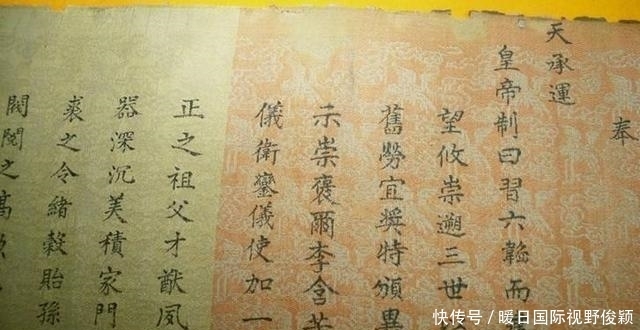 奉
天承運
皇帝制曰習六韜而
望攸崇遡三世
舊勞宜奬特頒異
示崇褒爾李含
儀衛鑾儀使加一
正之祖父才猷夙
器深沉美積家門
裘之令緒穀貽孫
閥閱之高
快传号 / 暖日国际视野俊颖